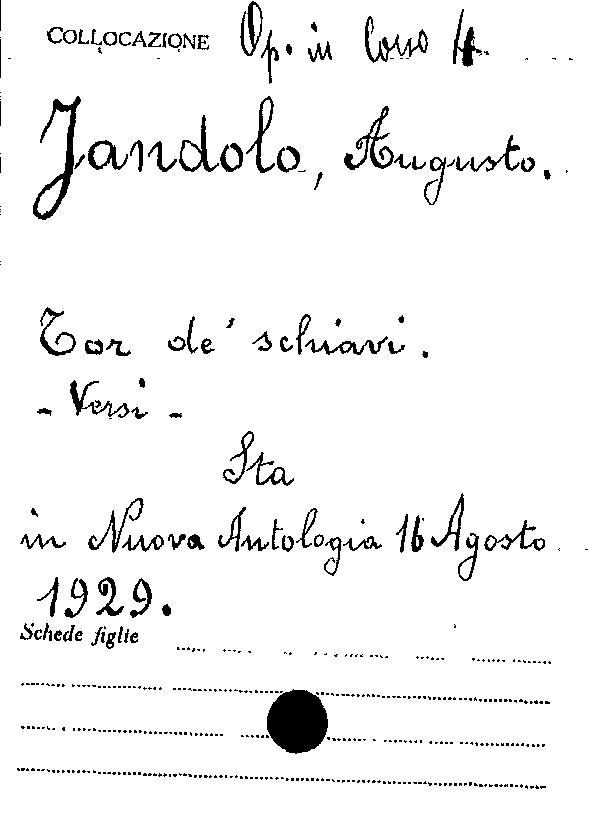 COLLOCAZIONE Op. in Corso 4
Jandolo, Augusto.
Tor de' schiavi.
- Versi -
Sta
in Nuova Antologia 16 Agosto
1929.
Schede figlie